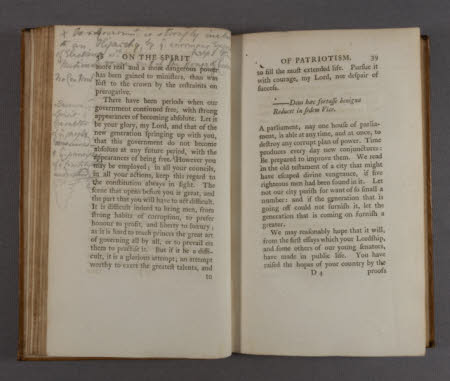 ON THE SPIRIT
more real and a more dangerous power
has been gained to ministers, than was
lost to the crown by the restraints on
prerogative.
There have been periods when our
government continued free, with strong
appearances of becoming absolute. Let it
be your glory, my Lord, and that of the
new generation springing up with you,
that this government do not become
absolute at any future period, with the
appearances of being free. However you
may be employed, in all your councils,
in all your actions, keep this regard to
the constitution always in sight. The
scene that opens before you is great, and
the part that you will have to act difficult.
It is difficult indeed to bring men, from
strong habits of corruption, to prefer
honour to profit, and liberty to luxury;
as it is hard to teach princes the great art
of governing all by all, or to prevail on
them to practise it. But if it be a diffi-
cult, it is a glorious attempt; an attempt
worthy to exert the greatest talents, and
to
OF PATRIOTISM. 39
to fill the most extended life. Pursue it
with courage, my Lord, nor despair of
success.
——Deus hæc fortasse benigna
Reducet in sedem Vice.
A parliament, nay one house of parlia-
ment, is able at any time, and at once, to
destroy any corrupt plan of power. Time
produces every day new conjunctures:
Be prepared to improve them. We read
in the old testament of a city that might
have escaped divine vengeance, if five
righteous men had been found in it. Let
not our city perish for want of so small a
number: and if the generation that is
going off could not furnish it, let the
generation that is coming on furnish a
greater.
We may reasonably hope that it will,
from the first essays which your Lordship,
and some others of our young senators,
have made in public life. You have
raised the hopes of your country by the
D 4 proofs